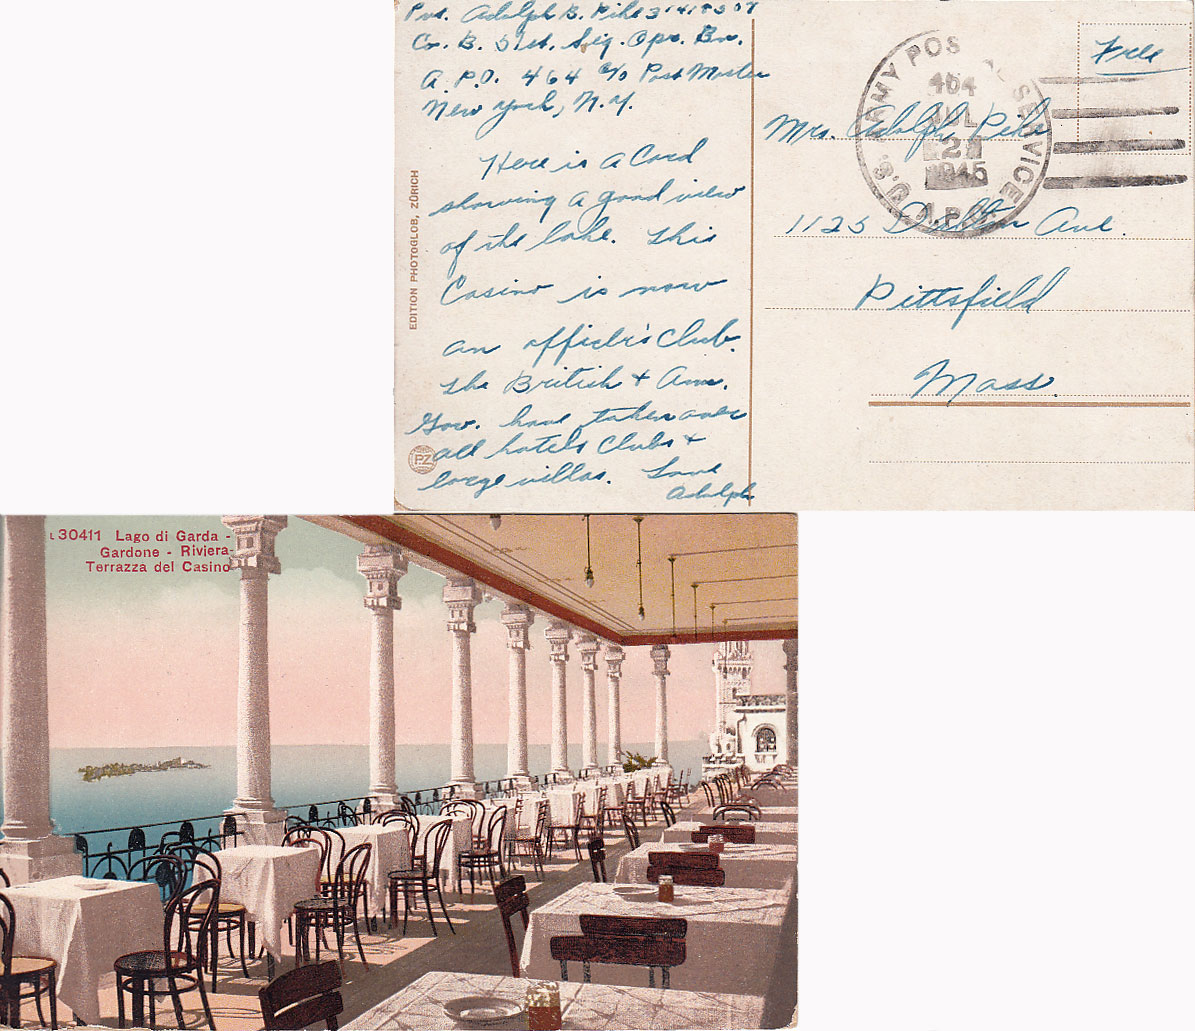 Pvt. Adolph B. Pike 31418507
Co. B. 51st. Sig. Opr. Bn.
A.P.O. 464 c/o Post Master
New York, N.Y.
Here is a Card
showing a good view
of the lake. This
Casino is now
an officer's Club.
The British + Am.
Gov. have taken over
all hotels Clubs +
large villas. Love
Adolph
EDITION PHOTOGLOB, ZÜRICH
PZ
U.S. ARMY POS SERVICE
A.P.O.
464
JUL
2
1945
Free
Mrs. Adolph Pike
1125 Dalton Ave.
Pittsfield
Mass.
L 30411 Lago di Garda -
Gardone - Riviera-
Terrazza del Casino